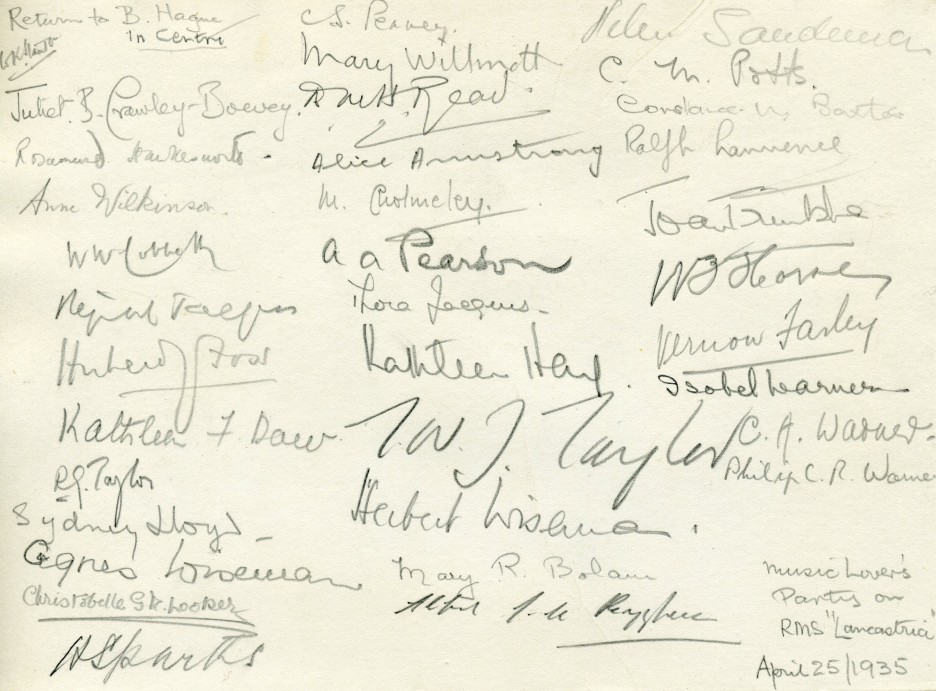 Return to B. Hague
in Centre
Juliet. B. Crawley-Boevey.
Rosamund
Anne Wilkinson.
W W Cobbett
Hubert J Foss
Kathleen F. Daw
R.J. Taylor
Sydney Lloyd
Agnes Wiseman
Christobelle
H Sparks
C. S. Penney.
Mary Willmott
Read.
Alice Armstrong
M. Cholmeley.
A A Pearson
Thora Jaques
Kathleen
T. W. J. Taylor
Herbert Wiseman.
Mary R. Bolam
Helen Sandeman
C. M. Potts.
Constance M. Baxter
Ralph Lawrence
Joan Trimble
Vernon Farley
Isobel
C. A. Warner
Philip C. R. Warner
Music Lover's
Party on
RMS "Lancastria"
April 25/1935